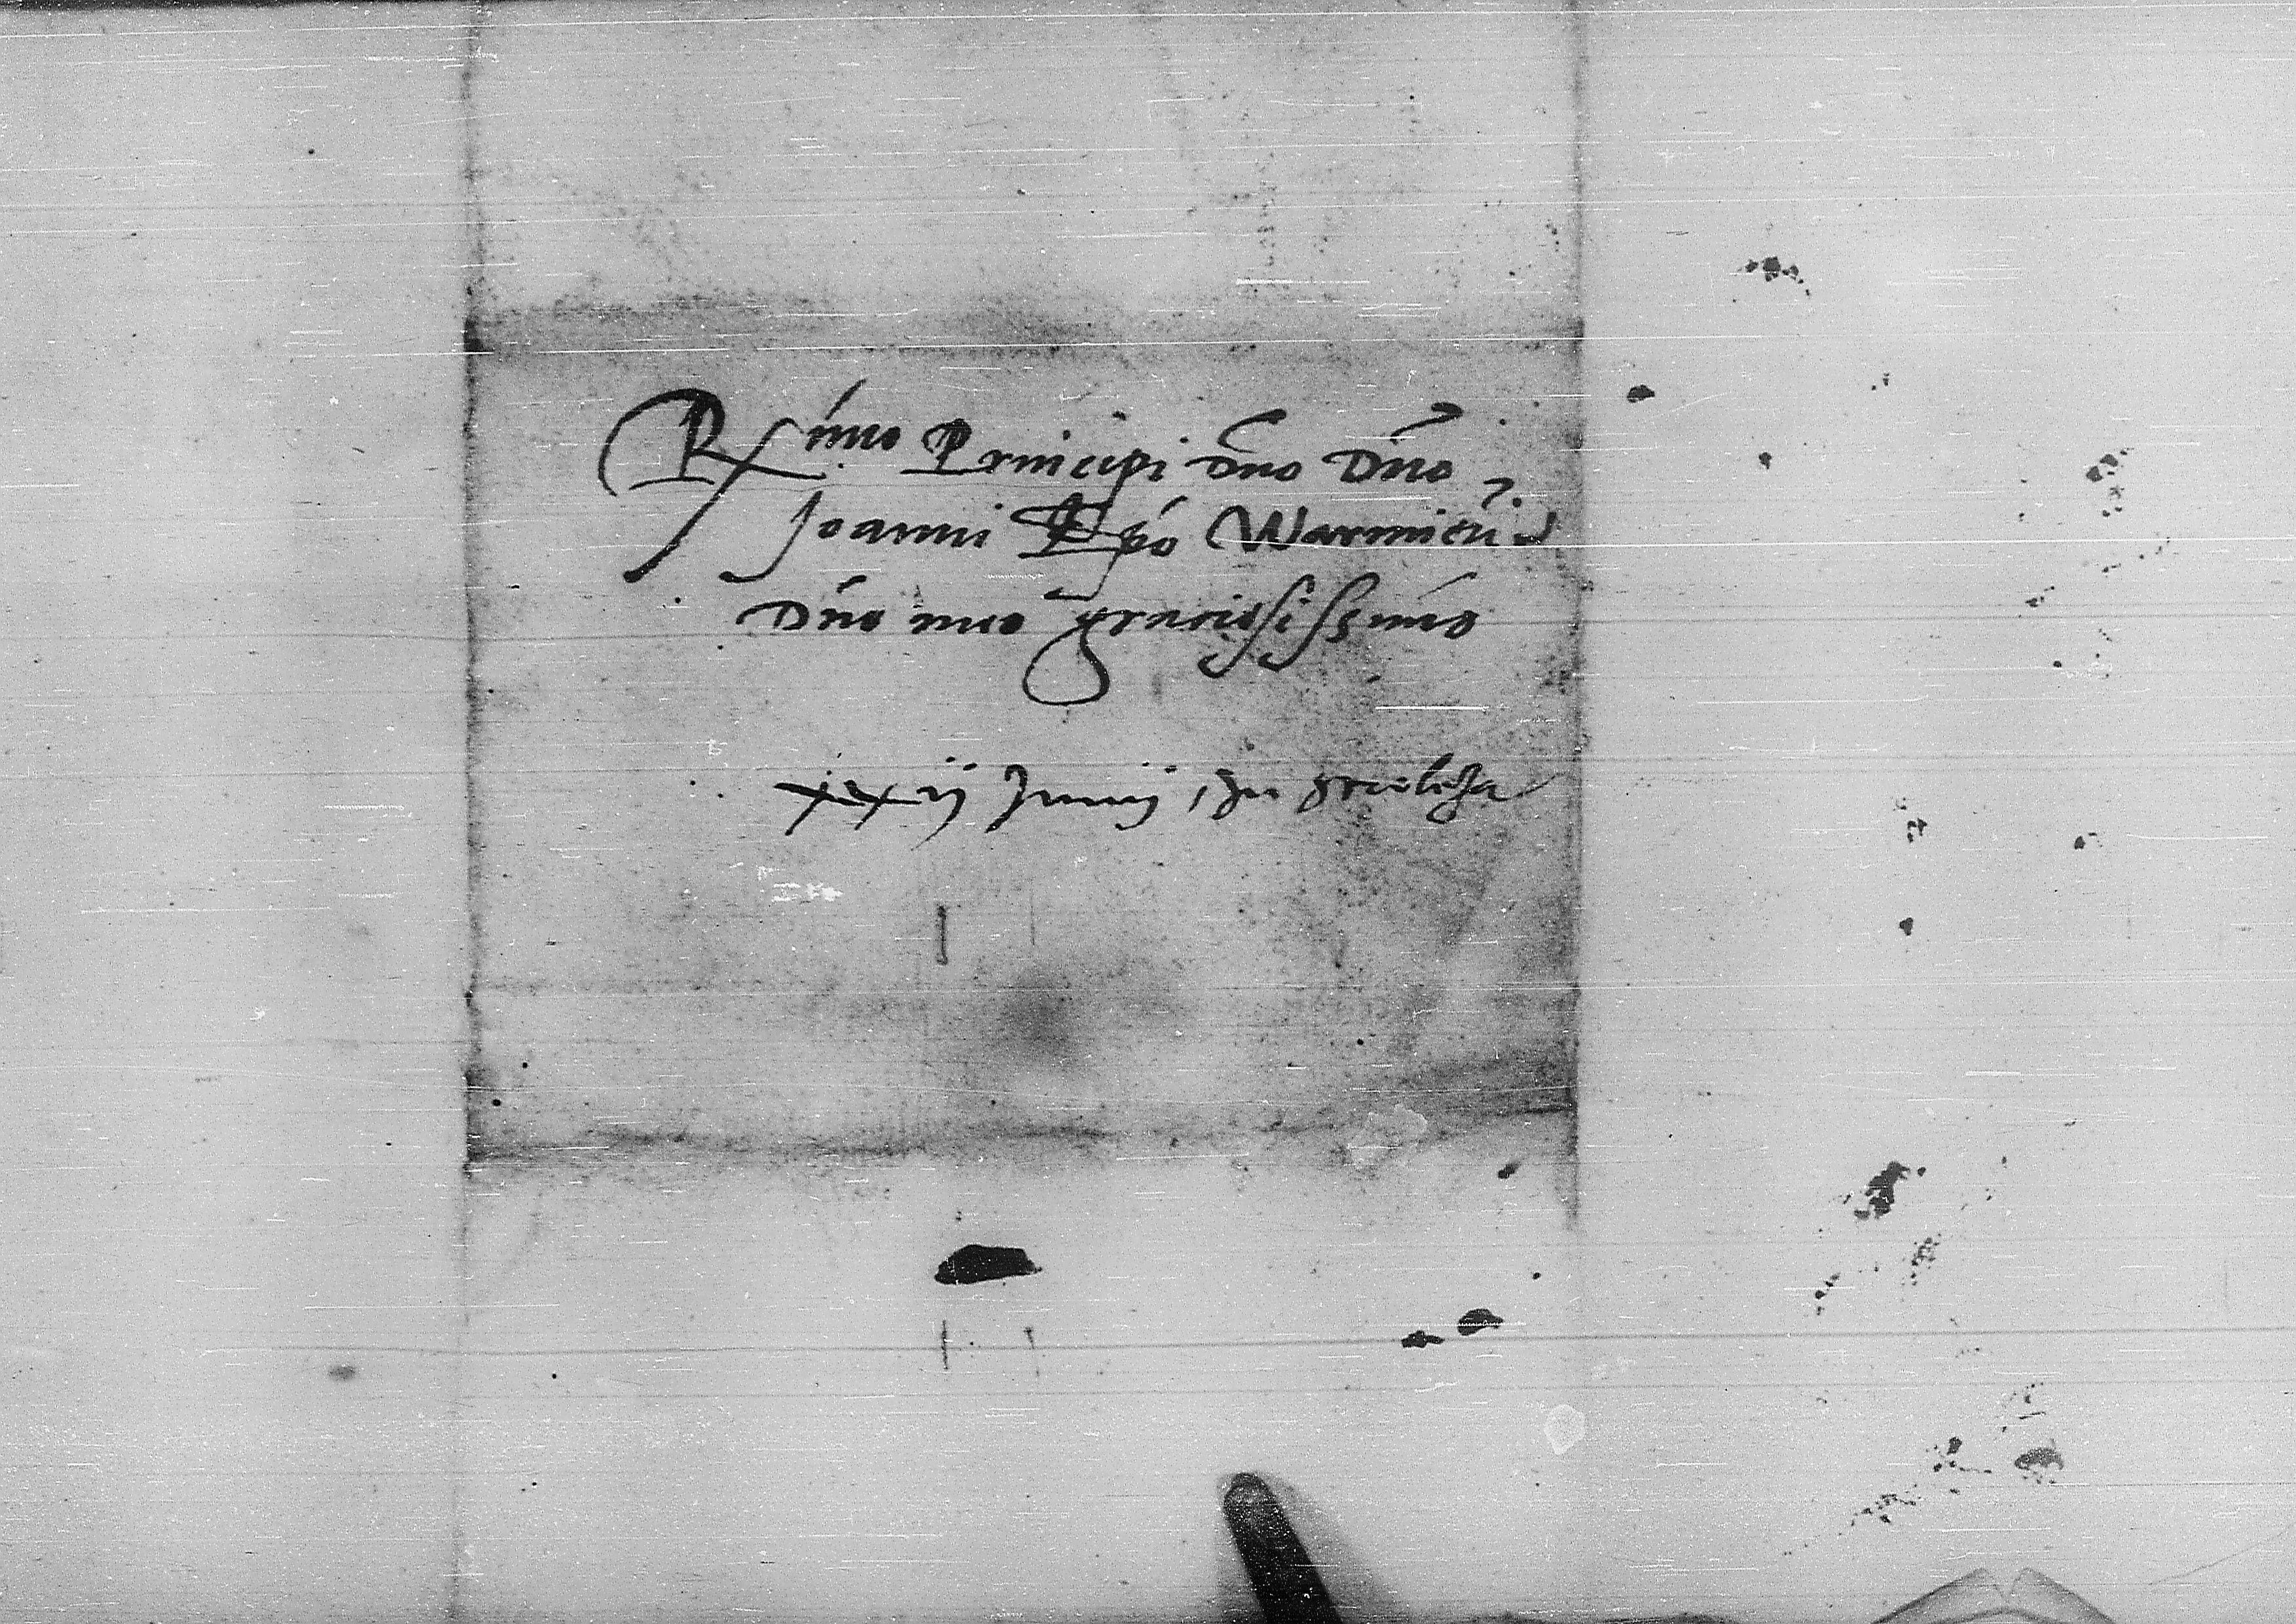 Rx́imo Principi dño Dño
Joanni Epó Warmieñ
Dño meo graciosissimo
xxij Junij, Zu